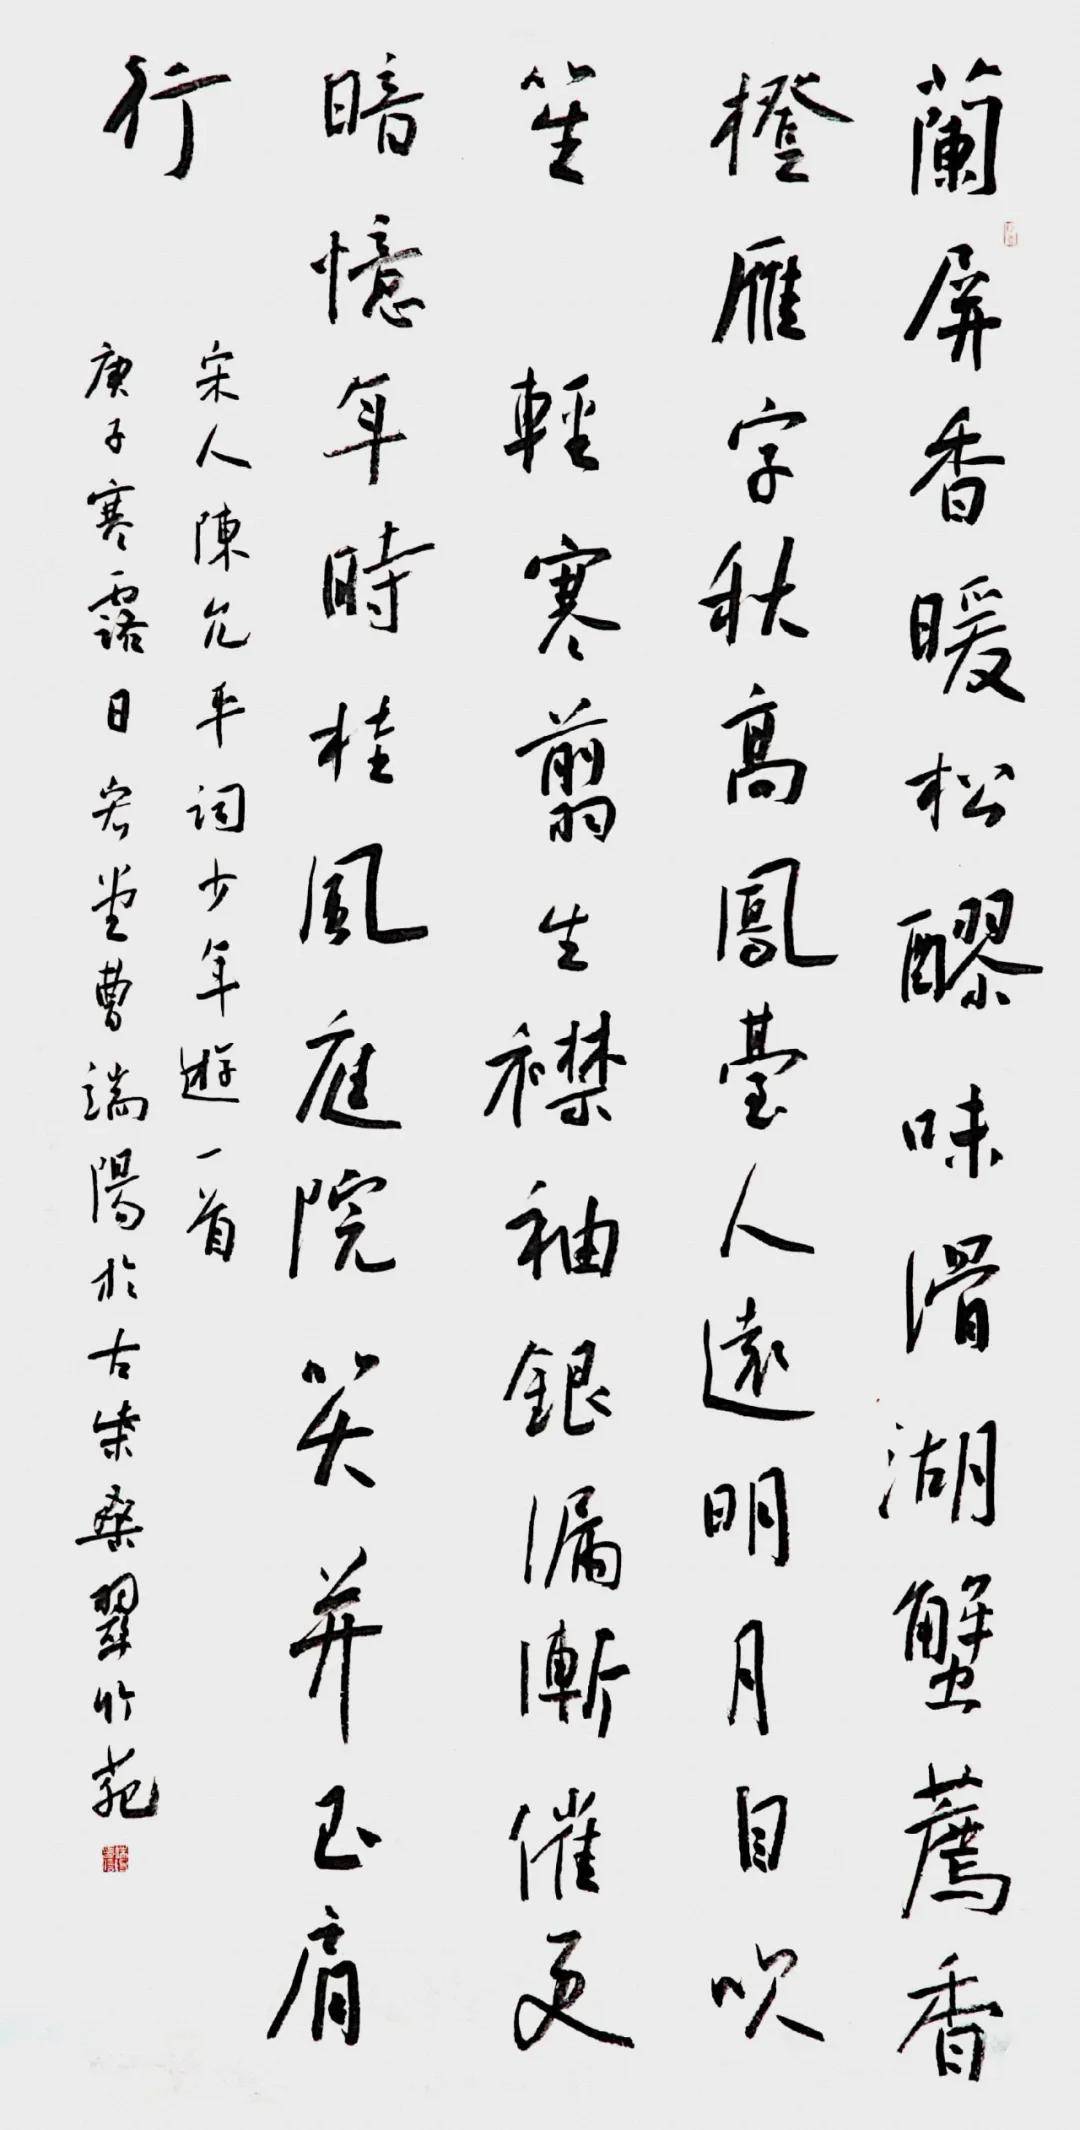 蘭屏香暖松醪味滑湖蟹薦香
橙雁字秋高鳳臺人遠明月自吹
笙 輕寒翦翦生襟袖銀漏漸催更
暗憶年時桂風庭院笑并玉肩
行
宋人陳允平詞少年遊一首
庚子寒露日宏堂曹端陽於古柴桑翠竹苑